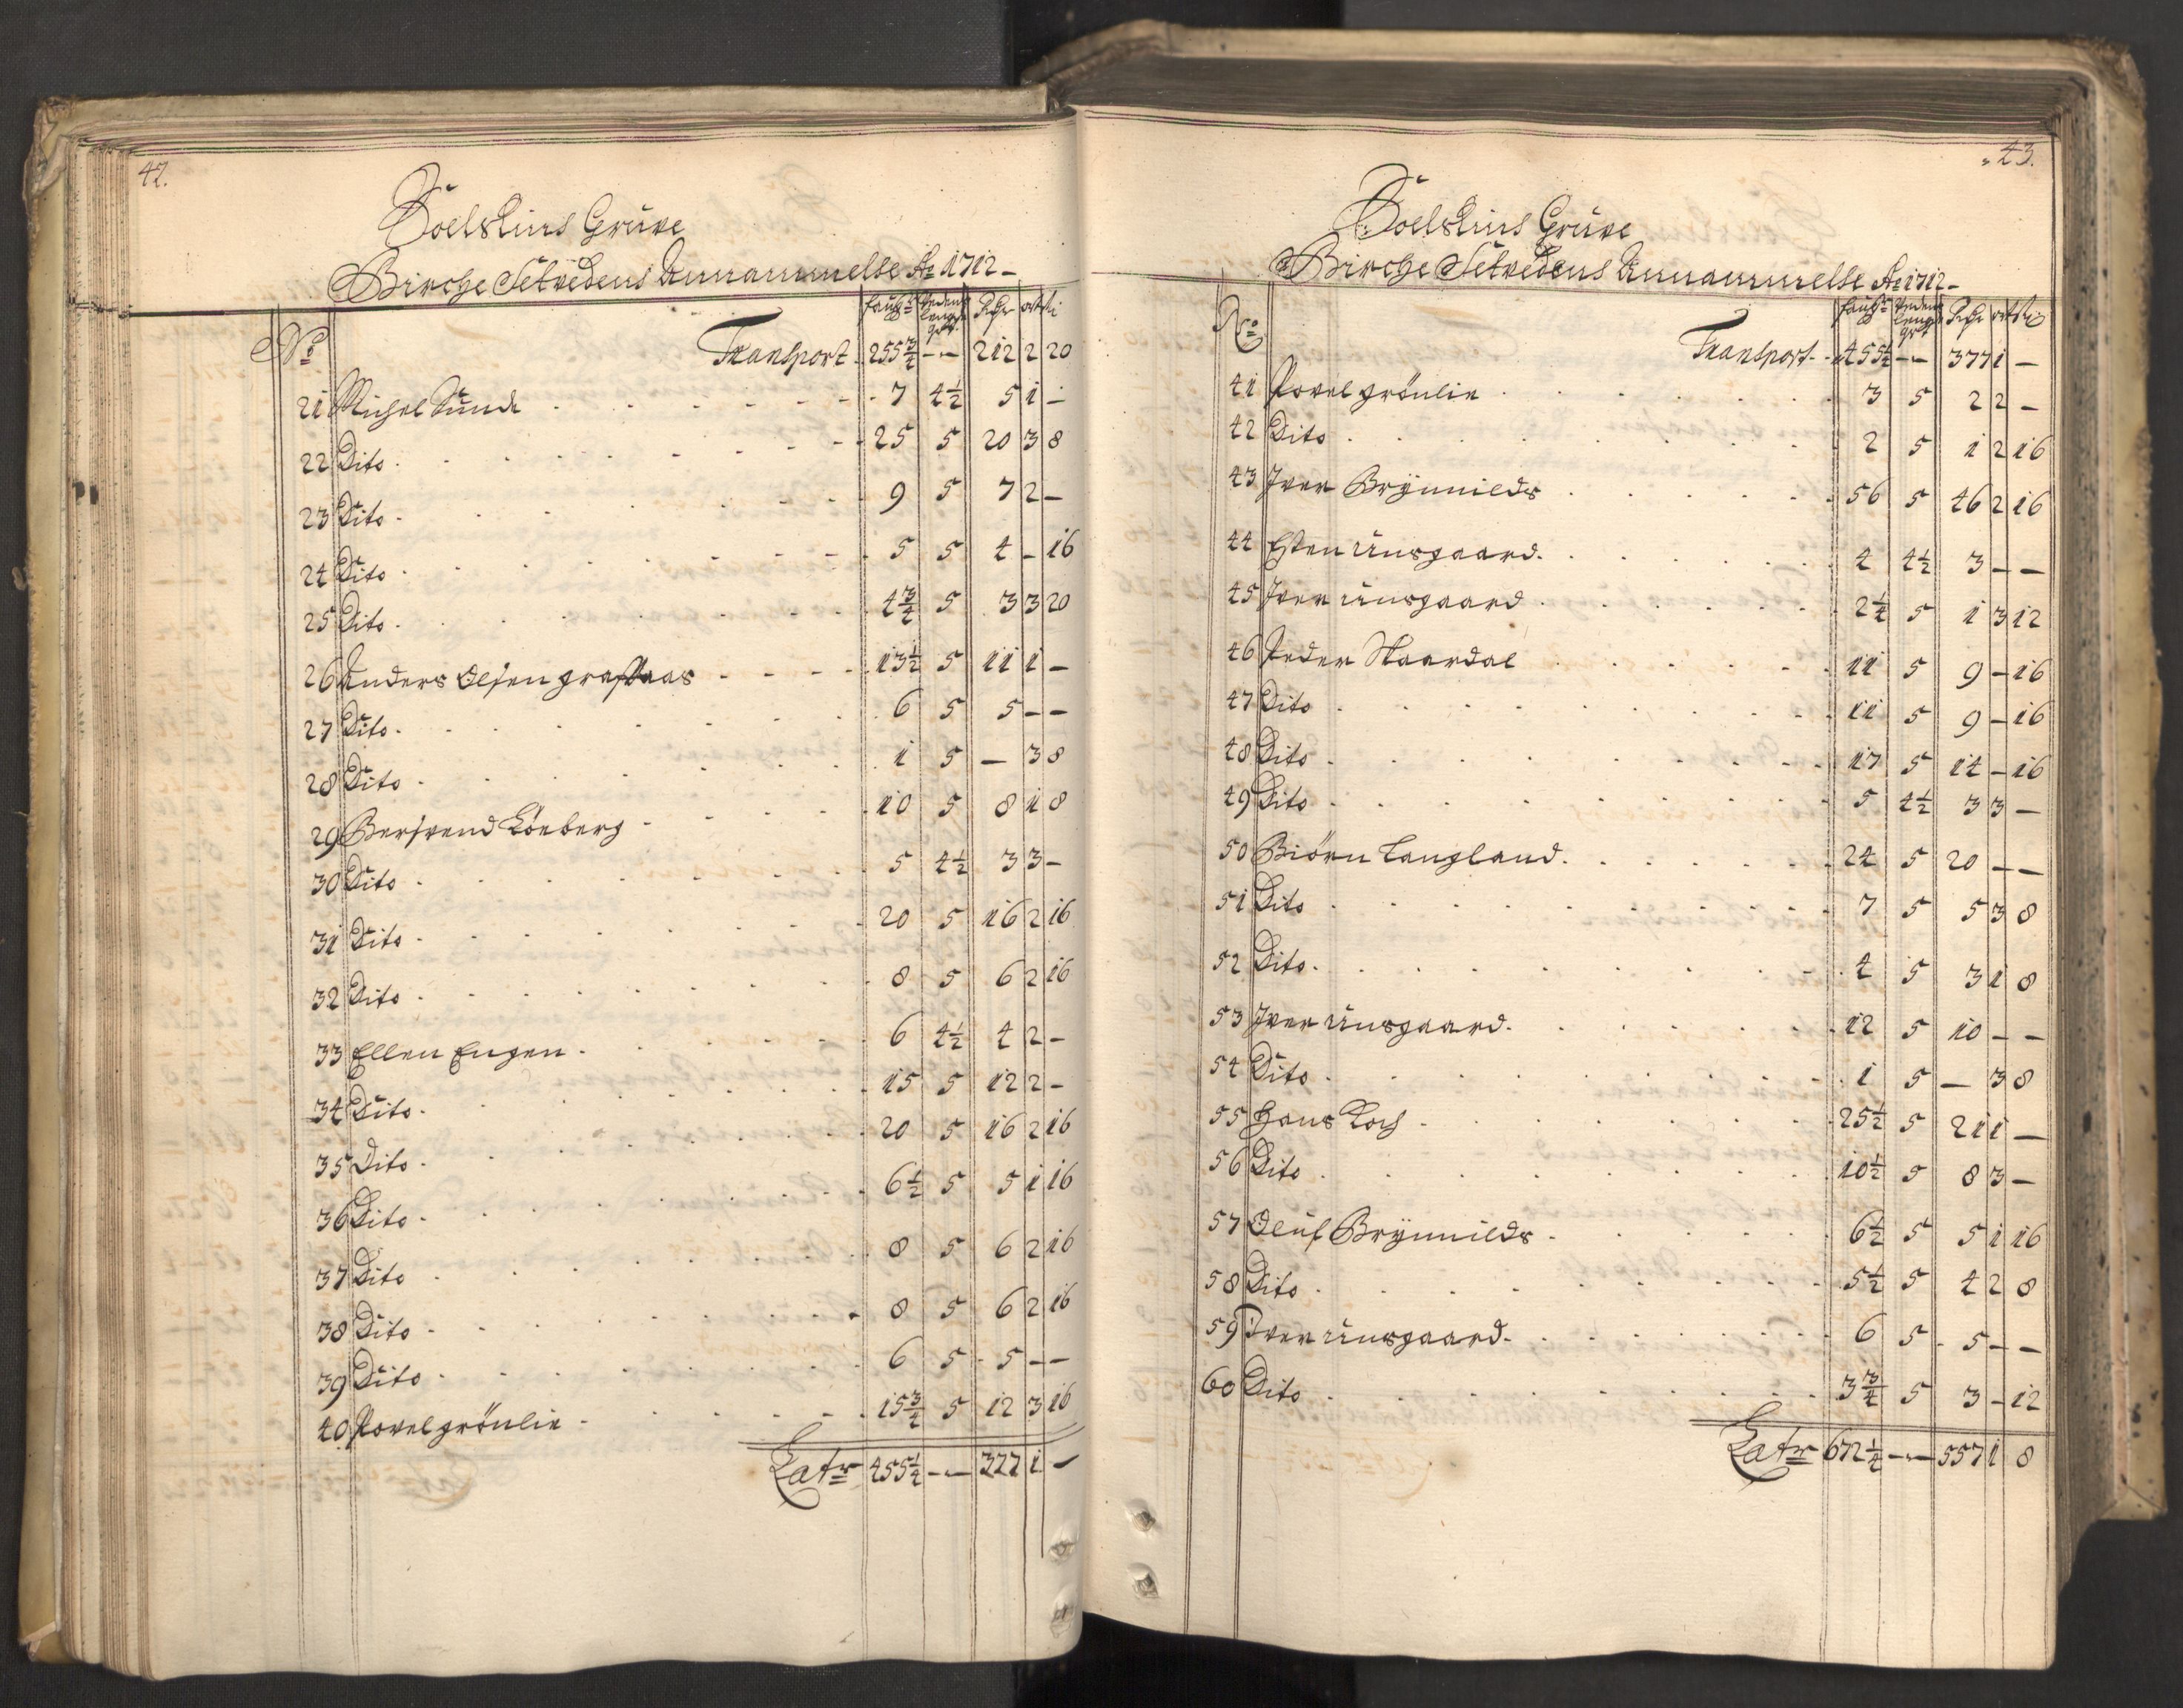 42.
Soelskins Grüve
Birche Setvedens Annammelse Ao 1712-
No
faufn vedens lengde qrt. Rdr ort ß
Transport. 255 3/4 -- 212 2 20
21 Michel Sünde 7 4 1/2 5 1 -
22 Dito 25 5 20 3 8
23 Dito 9 5 7 2 -
24 Dito 5 5 4 - 16
25 Dito 4 3/4 5 3 3 20
26 Anders Olsen graffaas 13 1/2 5 11 1 -
27 Dito 6 5 5 - -
28 Dito 1 5 - 3 8
29 Bersvend Löeberg 10 5 8 1 8
30 Dito 5 4 1/2 3 3 -
31 Dito 20 5 16 2 16
32 Dito 8 5 6 2 16
33 Ellen Engen 6 4 1/2 4 2 -
34 Dito 15 5 12 2 -
35 Dito 20 5 16 2 16
36 Dito 6 1/2 5 5 1 16
37 Dito 8 5 6 2 16
38 Dito 8 5 6 2 16
39 Dito 6 5 5 - -
40 Povel grönlie 15 3/4 5 12 3 16
Latr 455 1/4 -- 377 1 -
43.
Soelskins Grüve
Birche Setvedens Annammelse Ao 1712-
No
faufn vedens lengde qrt Rdr ort ß
Transport 455 1/4 -- 377 1 -
41 Povel grönlie 3 5 2 2 -
42 Dito 2 5 1 2 16
43 Iver Brÿnnilds 56 5 46 2 16
44 Esten Unsgaard 4 4 1/2 3 - -
45 Iver Unsgaard 2 1/4 5 1 3 12
46 Peder Naardal 11 5 9 - 16
47 Dito 11 5 9 - 16
48 Dito 17 5 14 - 16
49 Dito 5 4 1/2 3 3 -
50 Biörn Langland 24 5 20 - -
51 Dito 7 5 5 3 8
52 Dito 4 5 3 1 8
53 Iver Unsgaard 12 5 10 - -
54 Dito 1 5 - 3 8
55 Hans Koch 25 1/2 5 21 1 -
56 Dito 10 1/2 5 8 3 -
57 Oluf Brÿnnilds 6 1/2 5 5 1 16
58 Dito 5 1/2 5 4 2 8
59 Iver Unsgaard 6 5 5 - -
60 Dito 3 3/4 5 3 - 12
Latr 672 1/4 -- 557 1 8